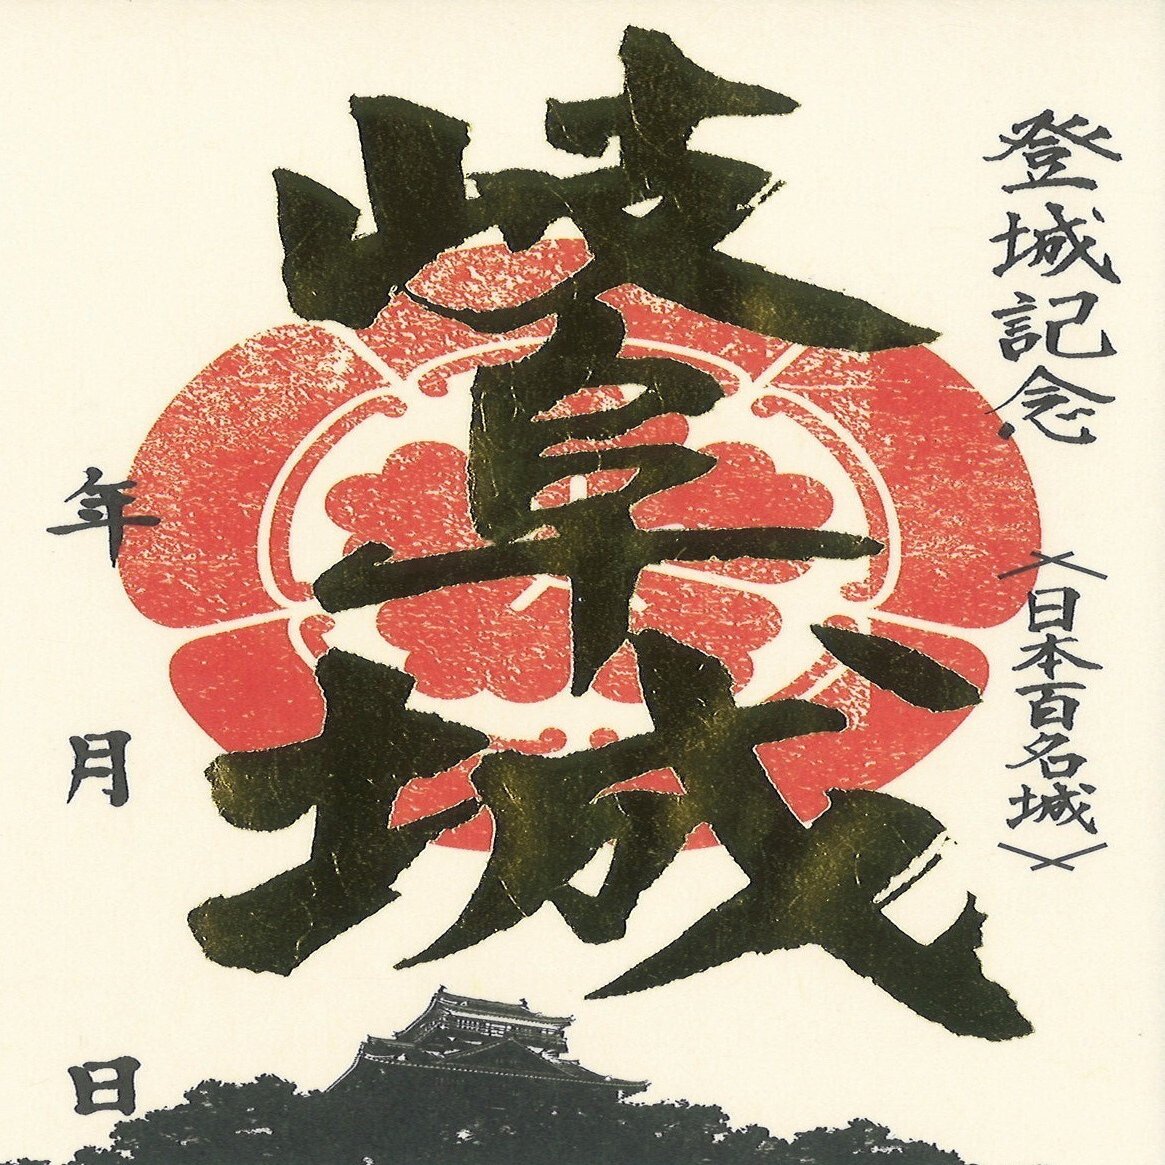 登城記念
〈日本百名城〉
岐阜城
年 月 日